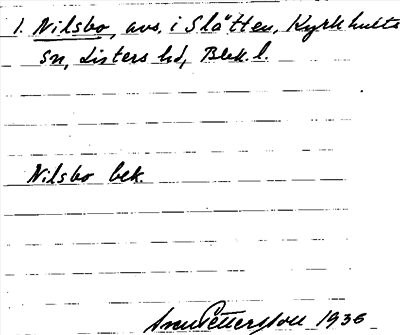 1. Nilsbo, avs. i Slätten, Kyrkhults
sn, Listers hd, Blek. l.
Nilsbo bek.
Pettersson 1936